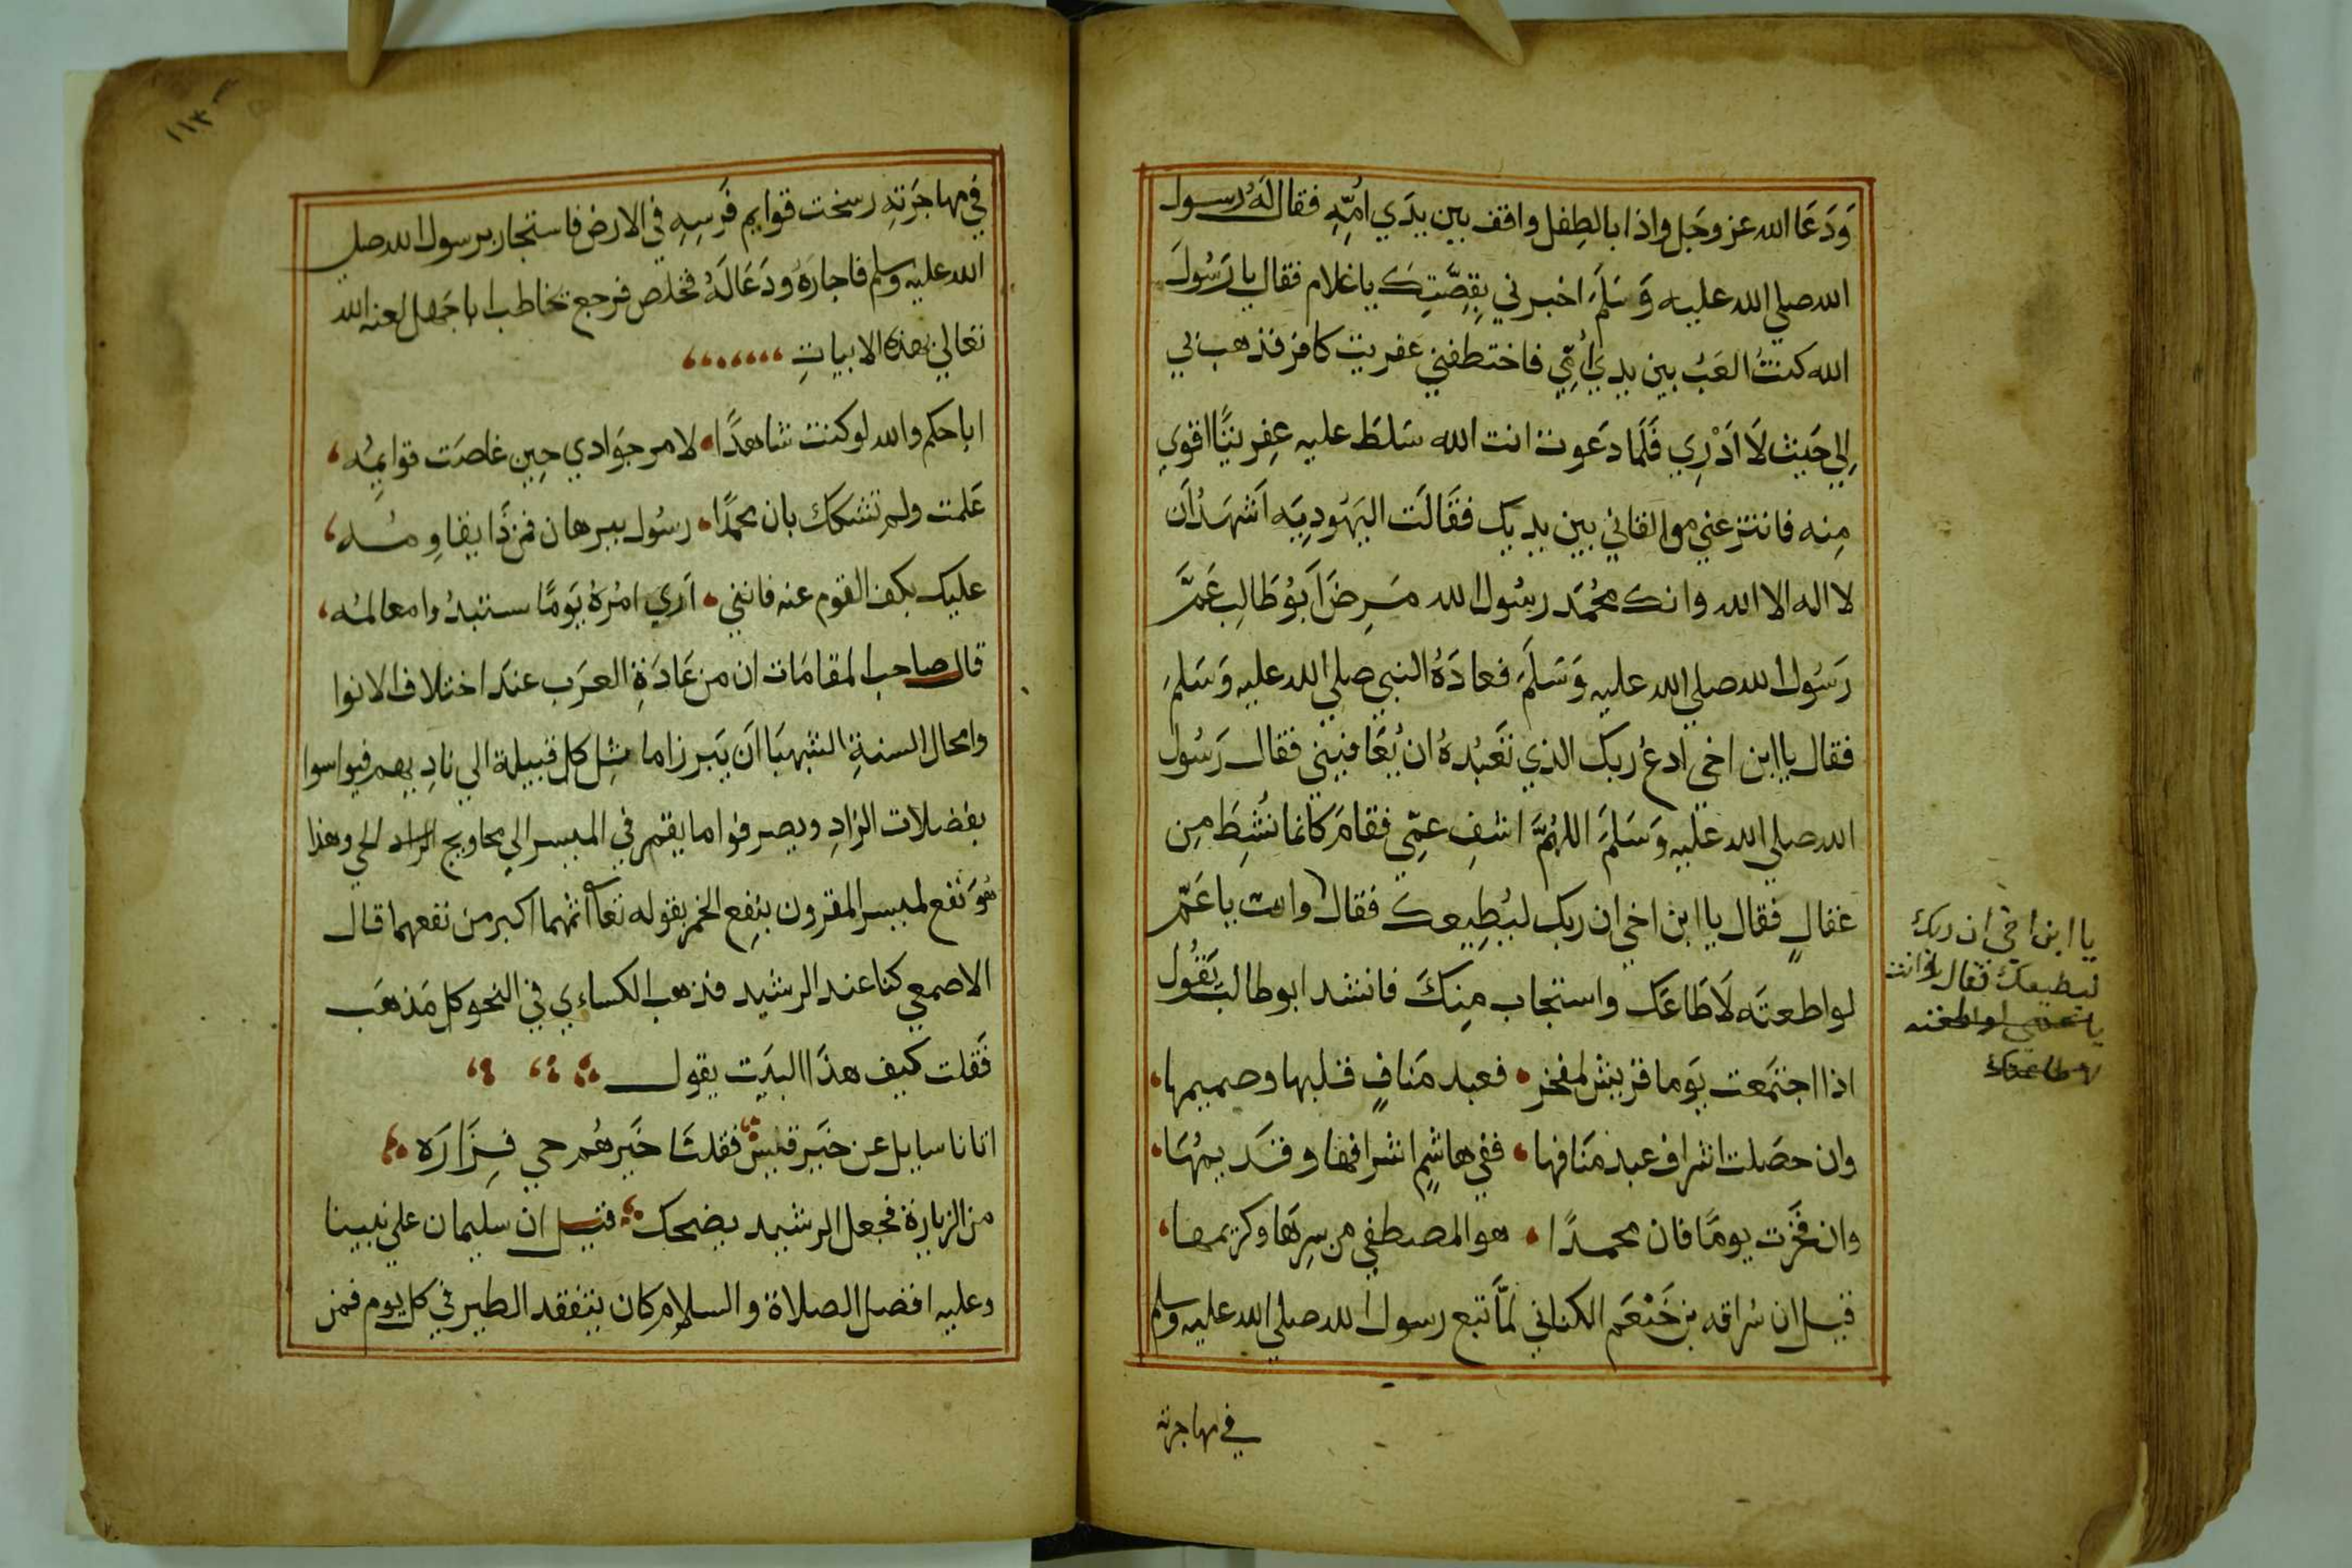 وَدَعَا الله عز وجَل واذا بالطِفل واقف بين يدَي امِّهِ فقال لَهُ رسول
الله صلي الله عليه وَسَلمَ اخبرني بِقِصَّتِكَ يا غلام فقال يا رَسُولَ
الله كنتُ العَبُ بين يدي اُمِّي فاختطفني عفريت كافر فذهب بي
اِلي حَيث لَا ادْرِي فَلَما دعَوت انت الله سَلطَ عليه عِفريتًا اقوي
مِنه فانتزعني موالقاني بين يديك فقَالَت اليَهُودِيَه اَشهَدُ اَن
لا اله الا الله وانك محُمَد رسُول الله مَرِضَ اَبوُ طَالِب عَمَّ
رَسُول الله صلي الله عليه وَسَلمَ فعادَهُ النبي صلي الله عليه وَسَلمَ
فقال يا ابن اخي ادعُ ربك الذي تَعَبُدهُ ان يُعَافيَني فقال رَسُول
الله صلي الله عليه وَسَلمَ اللهُمَّ اشفِ عمِّي فقامَ كانما نُشِطَ مِن
عقالٍ فقال يا ابن اخي ان ربك ليُطِيعك فقال وانت يا عَمّ
لو اطعتَه لَاطَاعَك واستجاب مِنكَ فانشد ابو طالب يَقُول
اذا اجتمَعت يَوما قريش لمفخر • فعبد مَنافٍ قلبها وصميمها
وان حصَلت اشراف عبد مَنَافها • ففي هاشمٍ اشرافها وقَديمُهَا
وان فَخَرَت يومًا فان محمدًا • هو المصطفي من سِرِهَا وكريمها
قيل ان سُراقه بن خَثْعَم الكناني لمَّا تبع رسول الله صلي الله عليه وسلم
في مهاجرته
يا ابن اخي ان ربك
ليطيعك فقال وانت
يا عمي لو اطعته
لاطاعك
١١٣
في مهاجَرَتِهِ رسخت قوايم فَرسِهِ في الارض فاستجار برسول الله صلي
الله عليه وسلم فاجارَهُ ودَعَا لَهُ فخلص فرجع يخاطب ابا جَهل لعنه الله
تعالي بهذه الابياتِ
ابا حكم والله لو كنت شاهدًا • لامر جوَادي حِين غاصَت قوايِمُه
عَلمت ولم تشكك بان محمدًا • رسُول ببرهان فمن ذَا يقاوِمُه
عليك بكف القوم عنه فانني • اَري امرُهُ يَومًا ستبدُوا معالمُه
قال صاحب المقامَات ان من عَادَةِ العرَب عندَ اختلاف الانوا
وامحال السنةِ الشهبَا اَن يَبرز اماثِل كل قبيلة الي نادِيهم فيواسوا
بفضلات الزادِ ويصرفوا ما يقمر في الميسر الي محاويج الحي وهذا
هُوَ نفع لميسر المقرون بنِفع الخمر بقوله تعا اثمهما اكبر من نفعهما قال
الاصمعي كنا عند الرشيد فذهب الكساءي في النحو كل مَذهَب
فَقلت كيف هذَا البَيت يقول
اتانا سايل عن خَير قيس فقلنَا خَيرهُم حي فِزَارَه
من الزيارة فجعل الرشيد يضحك قيل ان سليمان علي نبينا
وعليه افضل الصلاة والسلام كان يتفقد الطير في كل يوم فمن